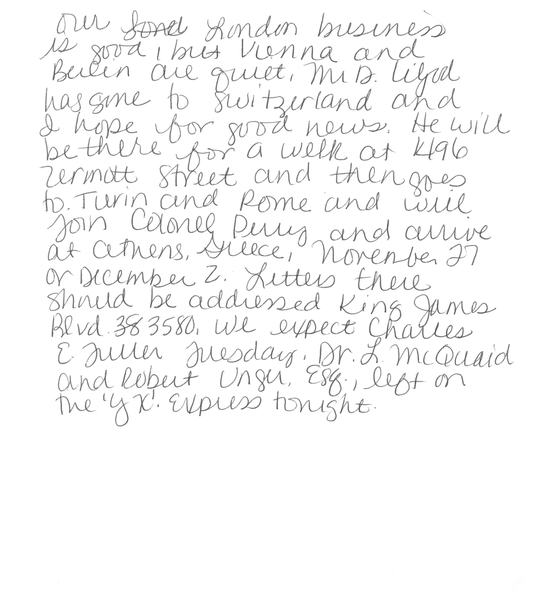 our London business
is good, but Vienna and
Berlin are quiet. Mr. D. Lloyd
has gone to Switzerland and
I hope for good news. He will
be there for a week at 1496
Zermott Street and then goes
to. Turin and Rome and will
join Colonel Perry and arrive
at Athens, Greece, November 27
or December 2. Letters there
should be addressed King James
Blvd. 383580. We expect Charles
E. Fuller Tuesday. Dr. L. McQuaid
and Robert Unger, Esq., left on
the 'Y X'. Express tonight.